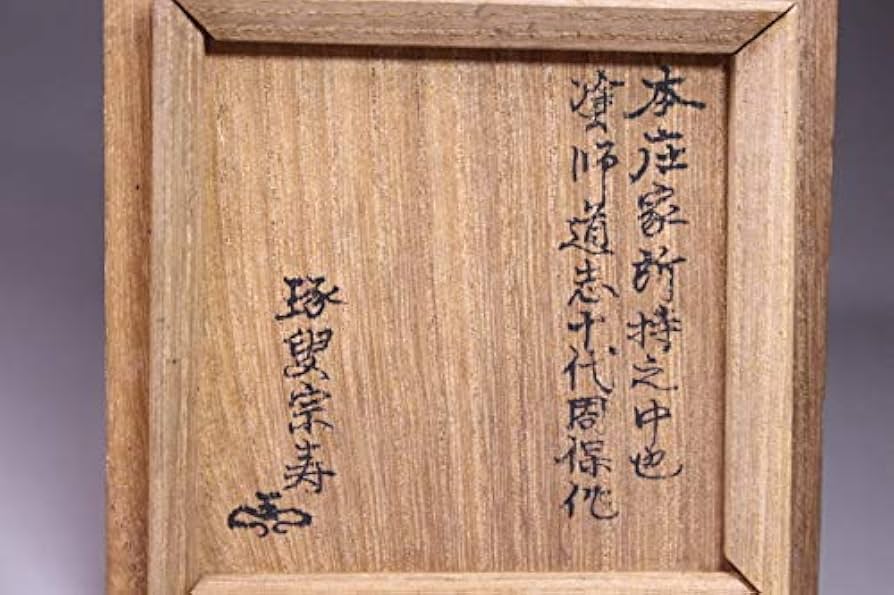 本庄家所持之中也
塗師道志十代周保作
琢叟宗寿